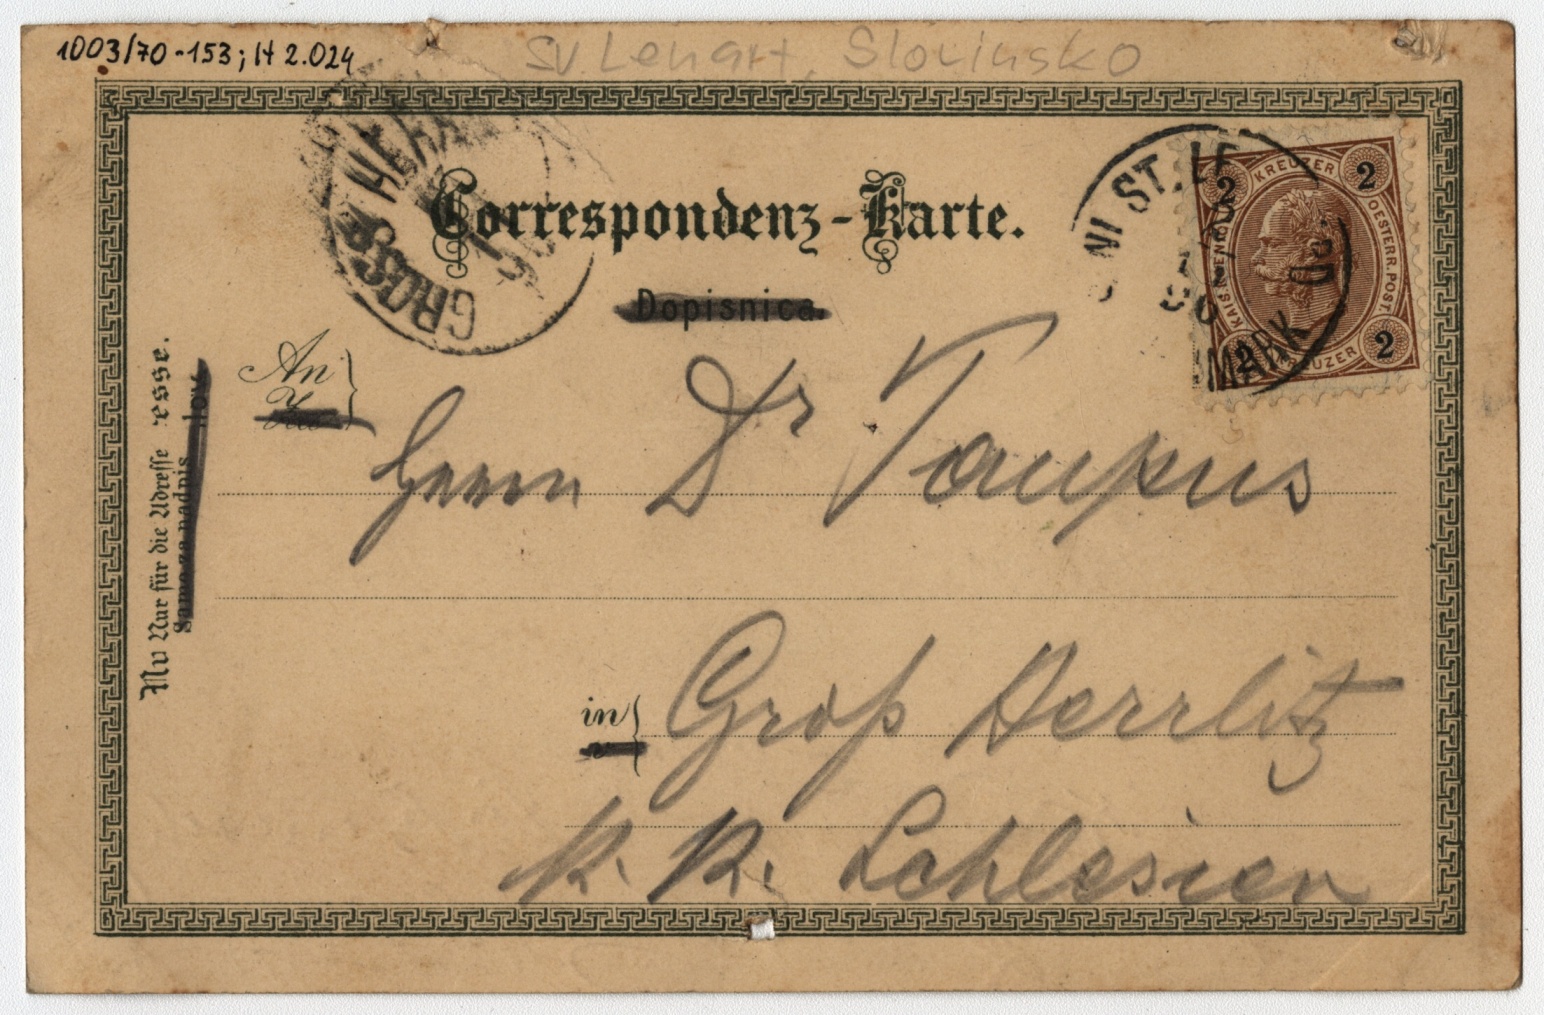 1003/70-153; H 2.024
Sv. Lenart, Slovinsko
GROSS HERR
NI ST. LE
MARK
2 KREUZER 2
KAIS. KÖN.
OESTERR. POST.
2 KREUZER 2
Correspondenz-Karte.
Dopisnica.
Nur für die Adresse
Samo za nadpis
An
Herrn Dr Taupus
in
Groß Herrlitz
K. K. Schlesien